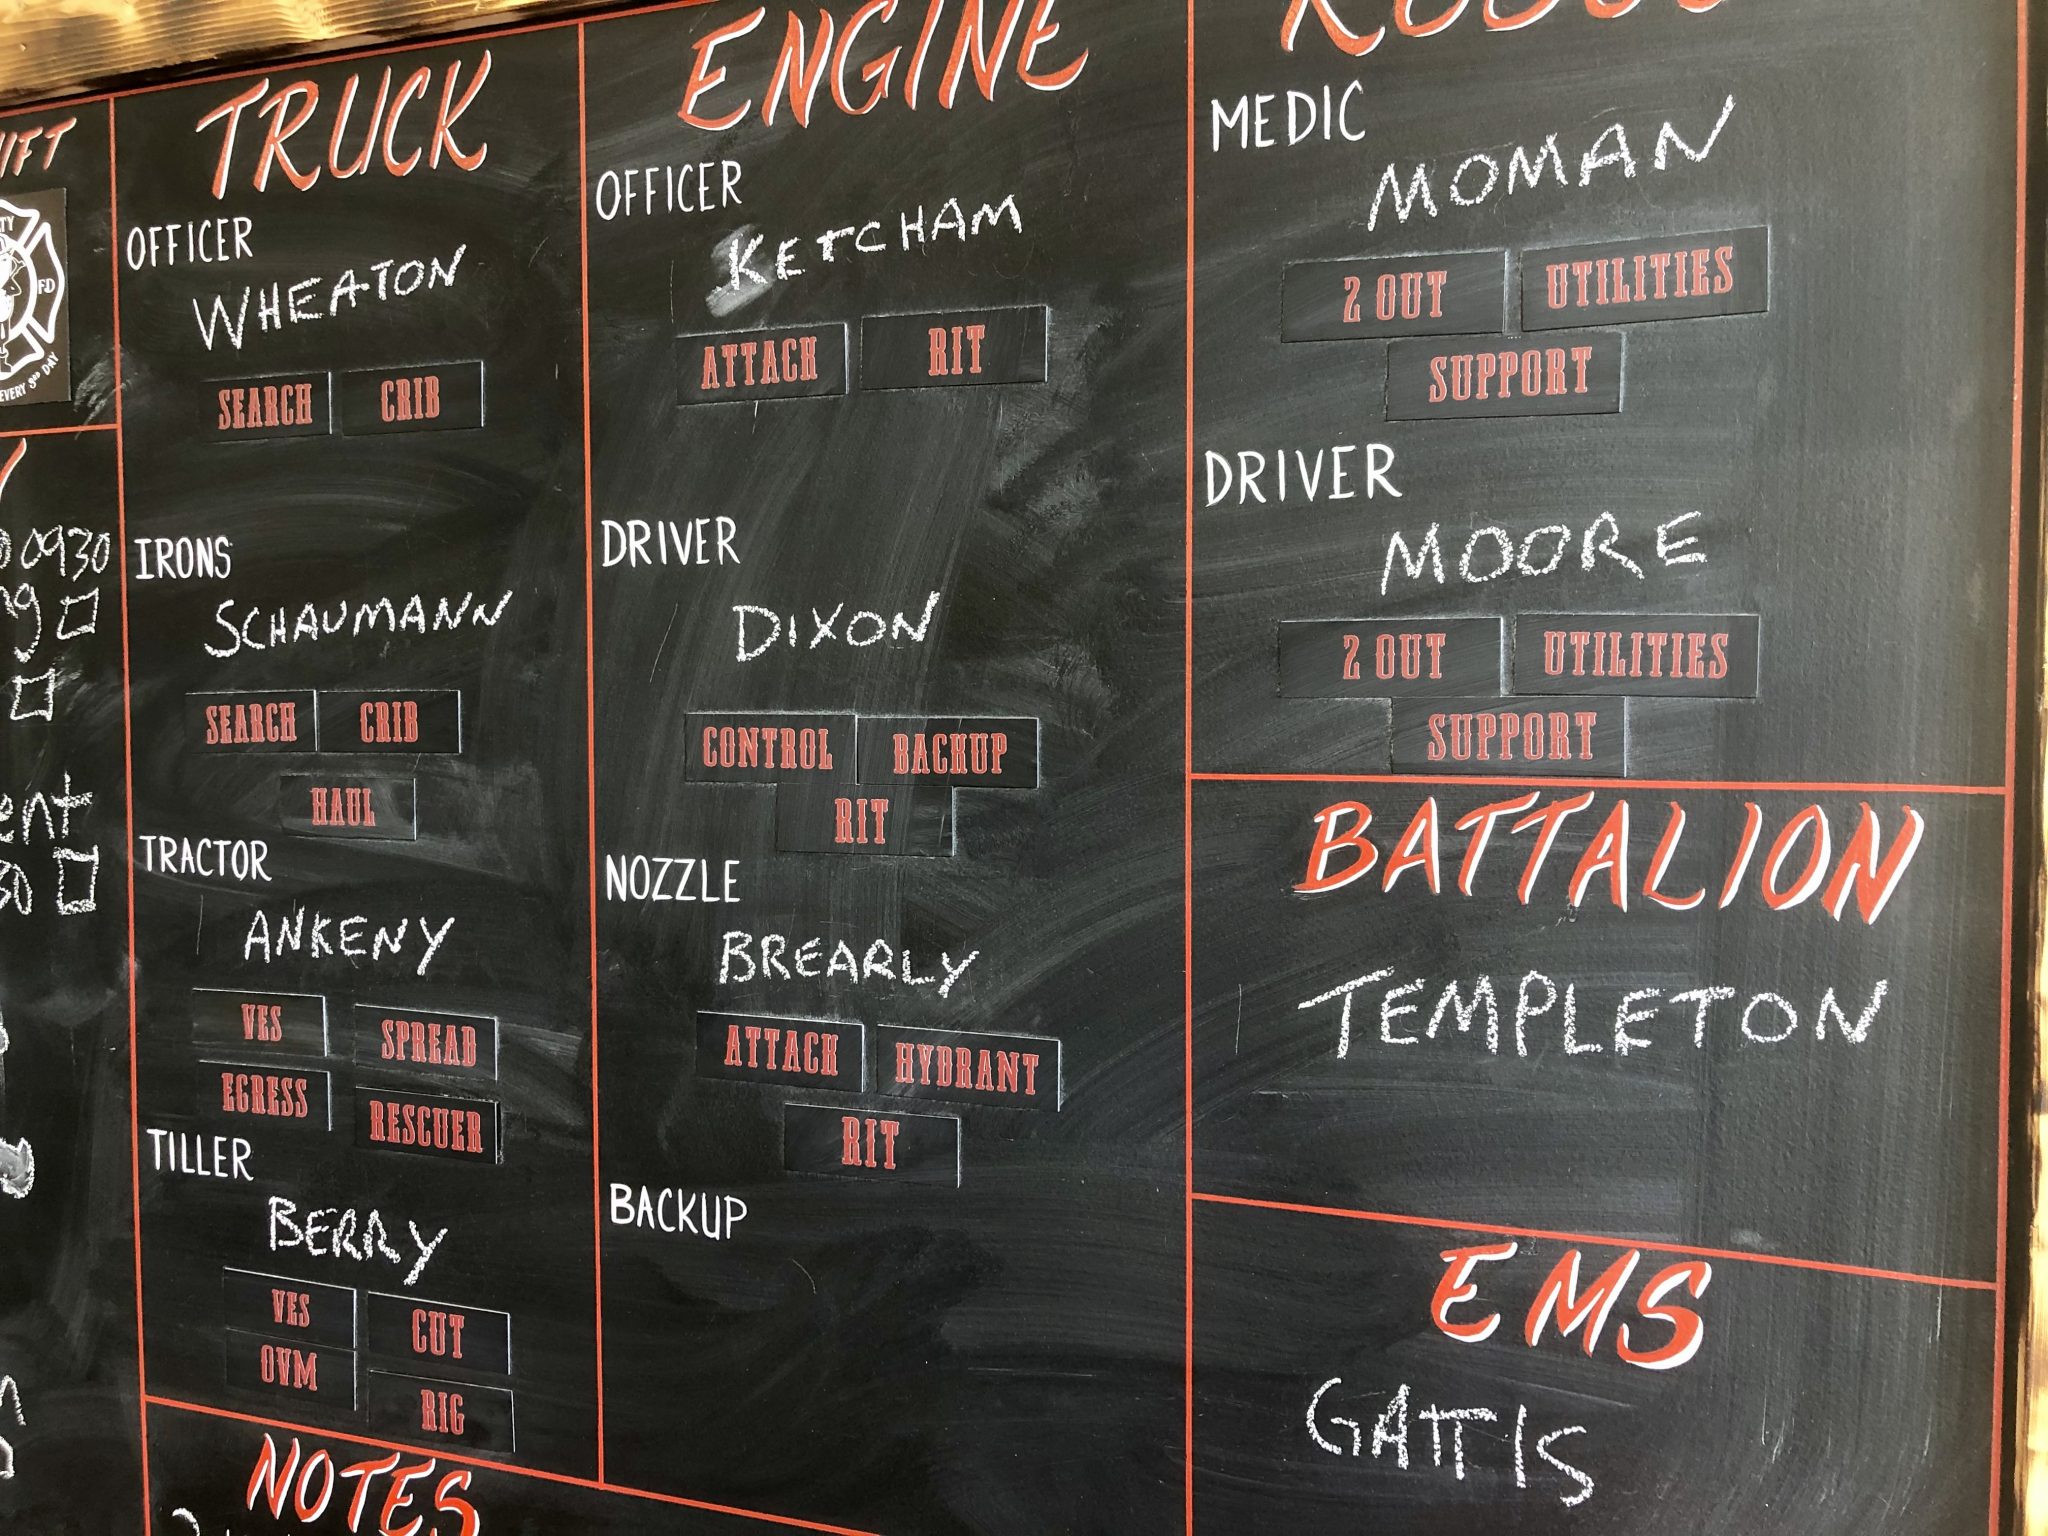 IFT
FD
EVERY 3RD DAY
0930
TRUCK
OFFICER
WHEATON
SEARCH CRIB
IRONS
SCHAUMANN
SEARCH CRIB
HAUL
TRACTOR
ANKENY
VES SPREAD
EGRESS RESCUER
TILLER
BERRY
VES CUT
OVM RIG
NOTES
ENGINE
OFFICER
KETCHAM
ATTACH RIT
DRIVER
DIXON
CONTROL BACKUP
RIT
NOZZLE
BREARLY
ATTACH HYDRANT
RIT
BACKUP
MEDIC
MOMAN
2 OUT UTILITIES
SUPPORT
DRIVER
MOORE
2 OUT UTILITIES
SUPPORT
BATTALION
TEMPLETON
EMS
GATTIS